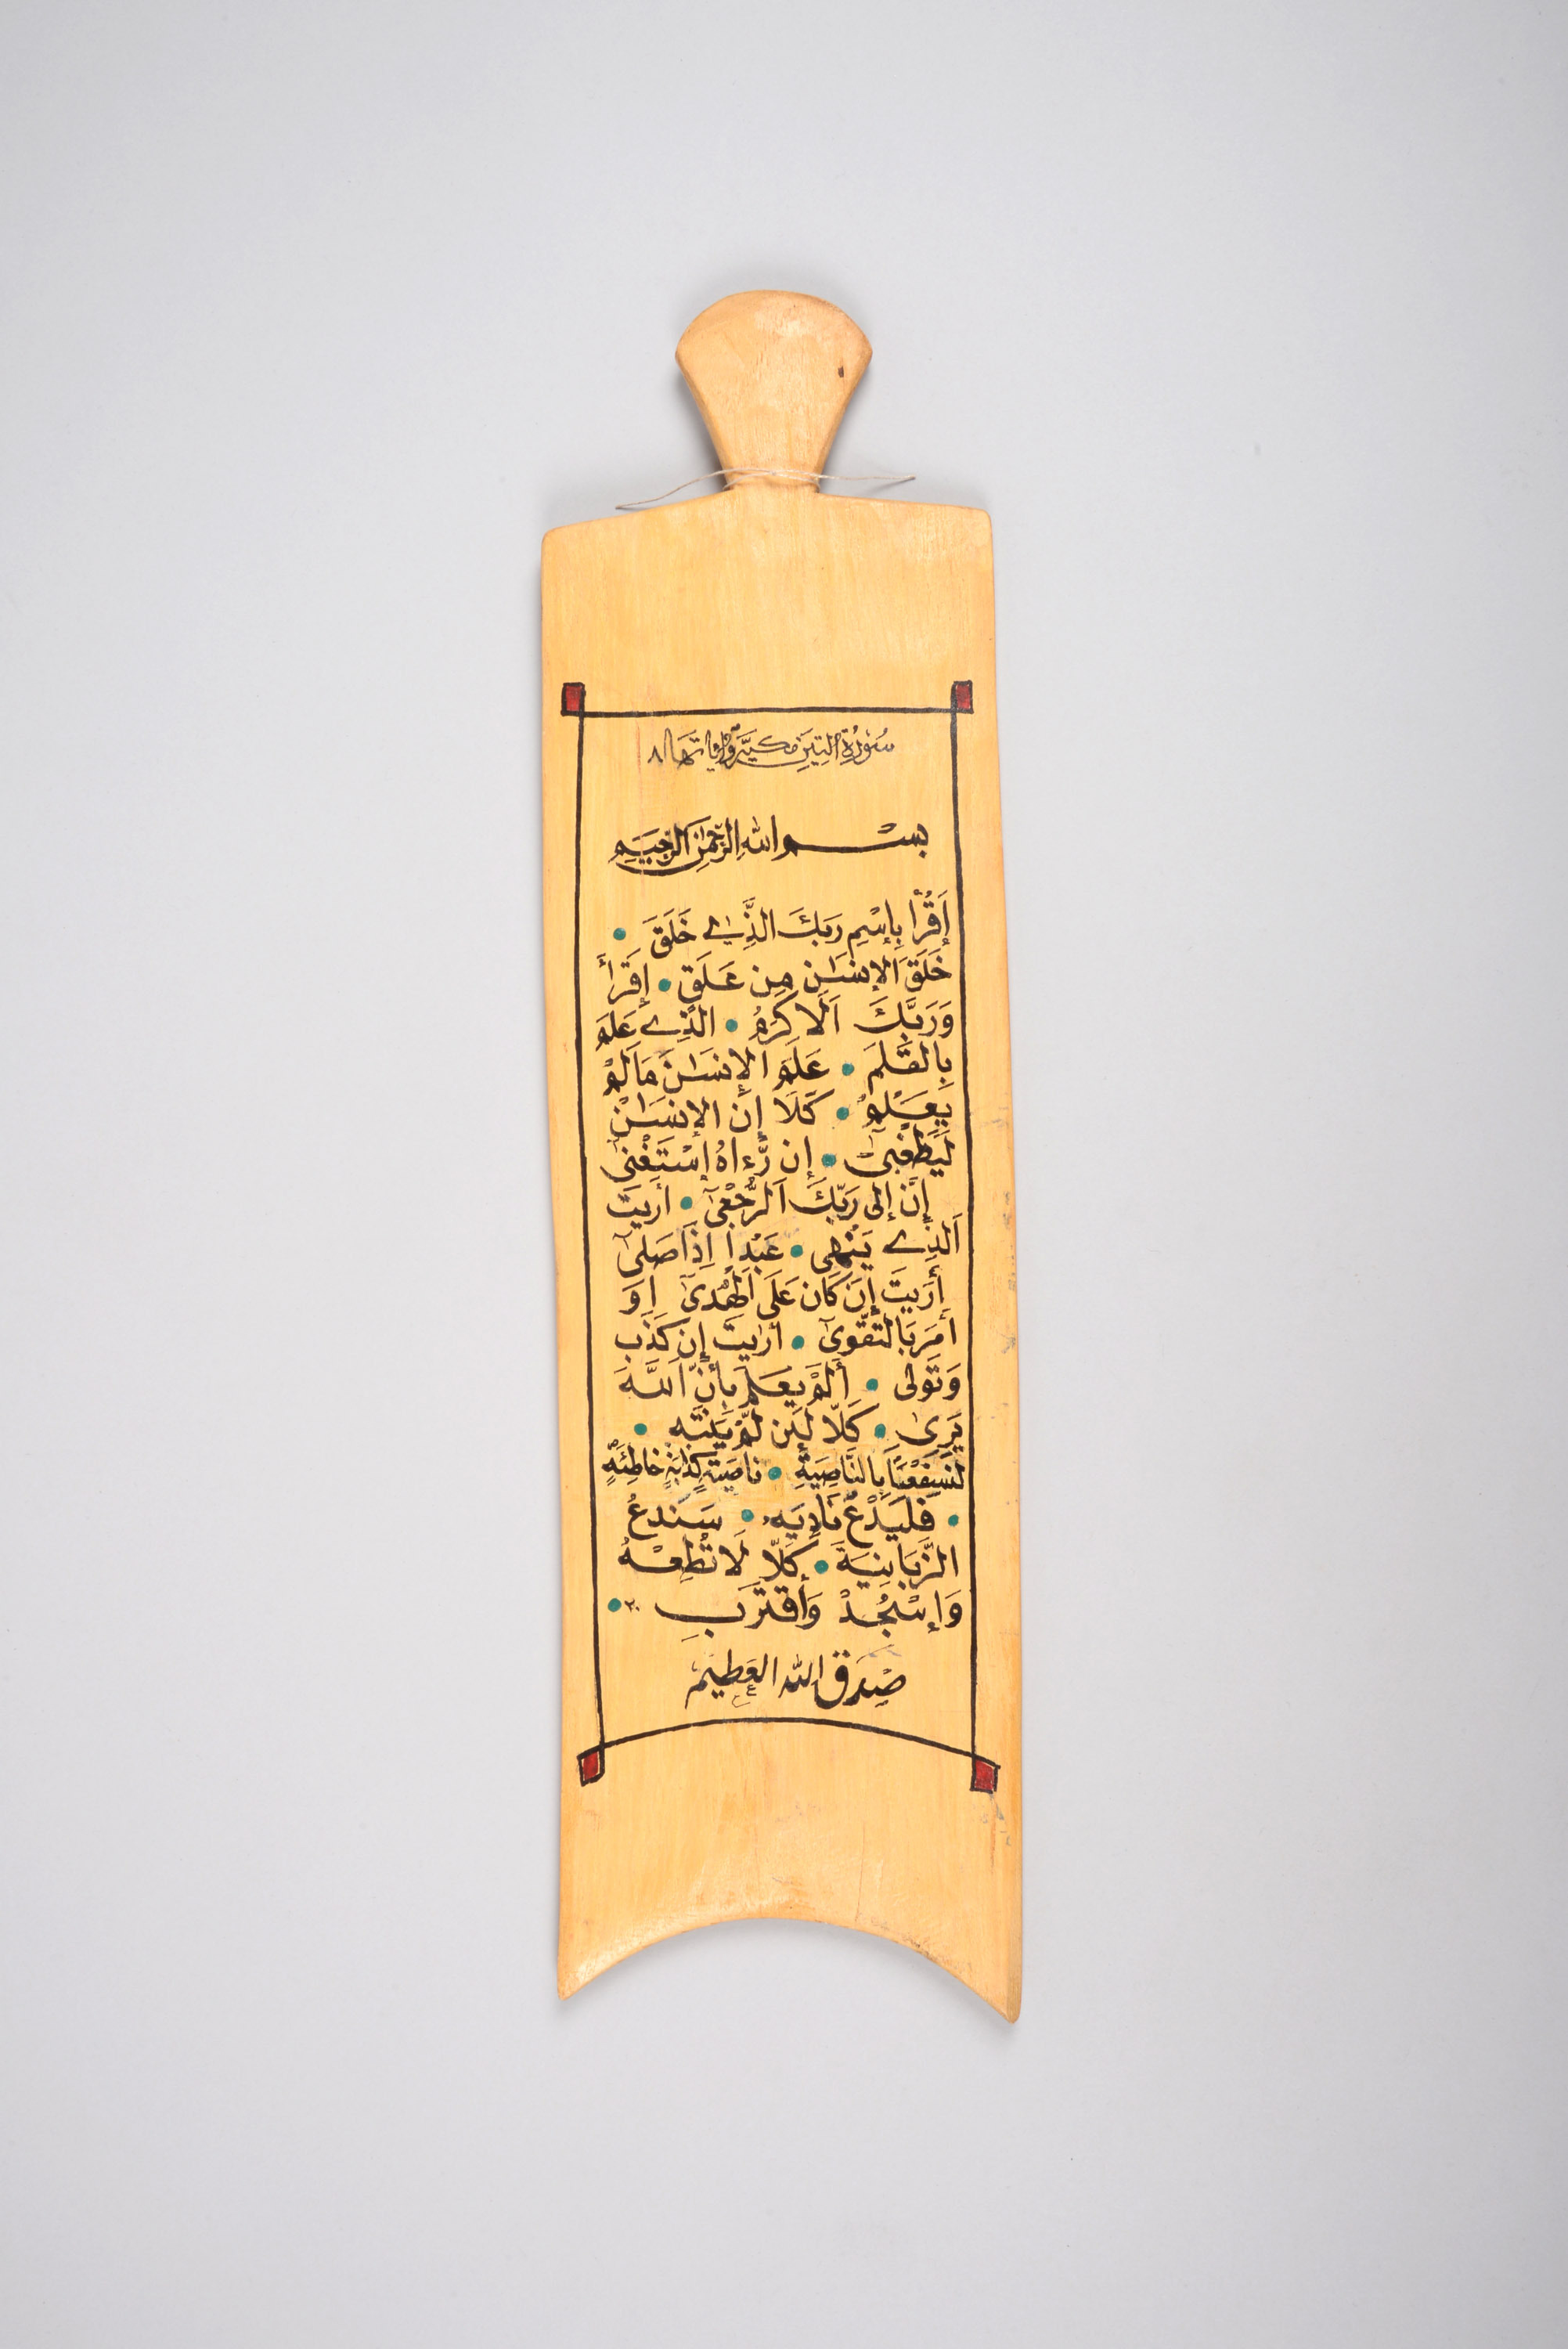 سُورَةُ التِينِ مَكيَّة وَءاياتهَا ٨
بِسْمِ اللهِ الرَّحْمٰنِ الرَّحِيمِ
إَقْرَأْ بِإسْمِ رَبِكَ الذِّے خَلَقَ
خَلَقَ اَلإنسَـٰن مِن عَلَقٍ • إقَرَأ
وَرَبَّكَ اَلَاكرَمُ • الذِے عَلَمَ
بِالقَلَمَ • عَلَمَ اَلإنسَـٰنَ مَالَمْ
يعَـلَمْ • كَلَا إنَّ الإنسَـٰنْ
لَيَطْغىٰٓ • إن رَّءاهُ إسْتَغْنىٰ
إنَّ إلى رَبِّكَ اَلرُّجْعىٰٓ • أريتَ
اَلذِے يَنْهى • عَبْداً إِذَا صَلىٰٓ
أَرَيتَ إن كَان عَلَى اَلْهُدىٰٓ اوَ
أمَرَ بَالتَّقْوىٰٓ • أرٰيتَ إن كَذَب
وَتَوَلى • أَلَمْ يعَـلَم بِأنَّ اَللَّـهَ
يَرىٰ • كَلَّا لَئِن لَّمْ يَنتَهِ •
لَنَسْفَعْنَاً بِالنَّاصِيَةِ • ناصَيَةٍ كَٰذِبَةٍ خَاطِئَةٍ
• فَليَدْعُ نَادِيَهُ • سَنَدعُ
الزَّبَانِيَةَ • كَلَّا لَا تُطِعْـهُ
وَإسْجُدْ وَأقتَرَب ٢٠ •
صَدَقَ الله العَظِيمْ